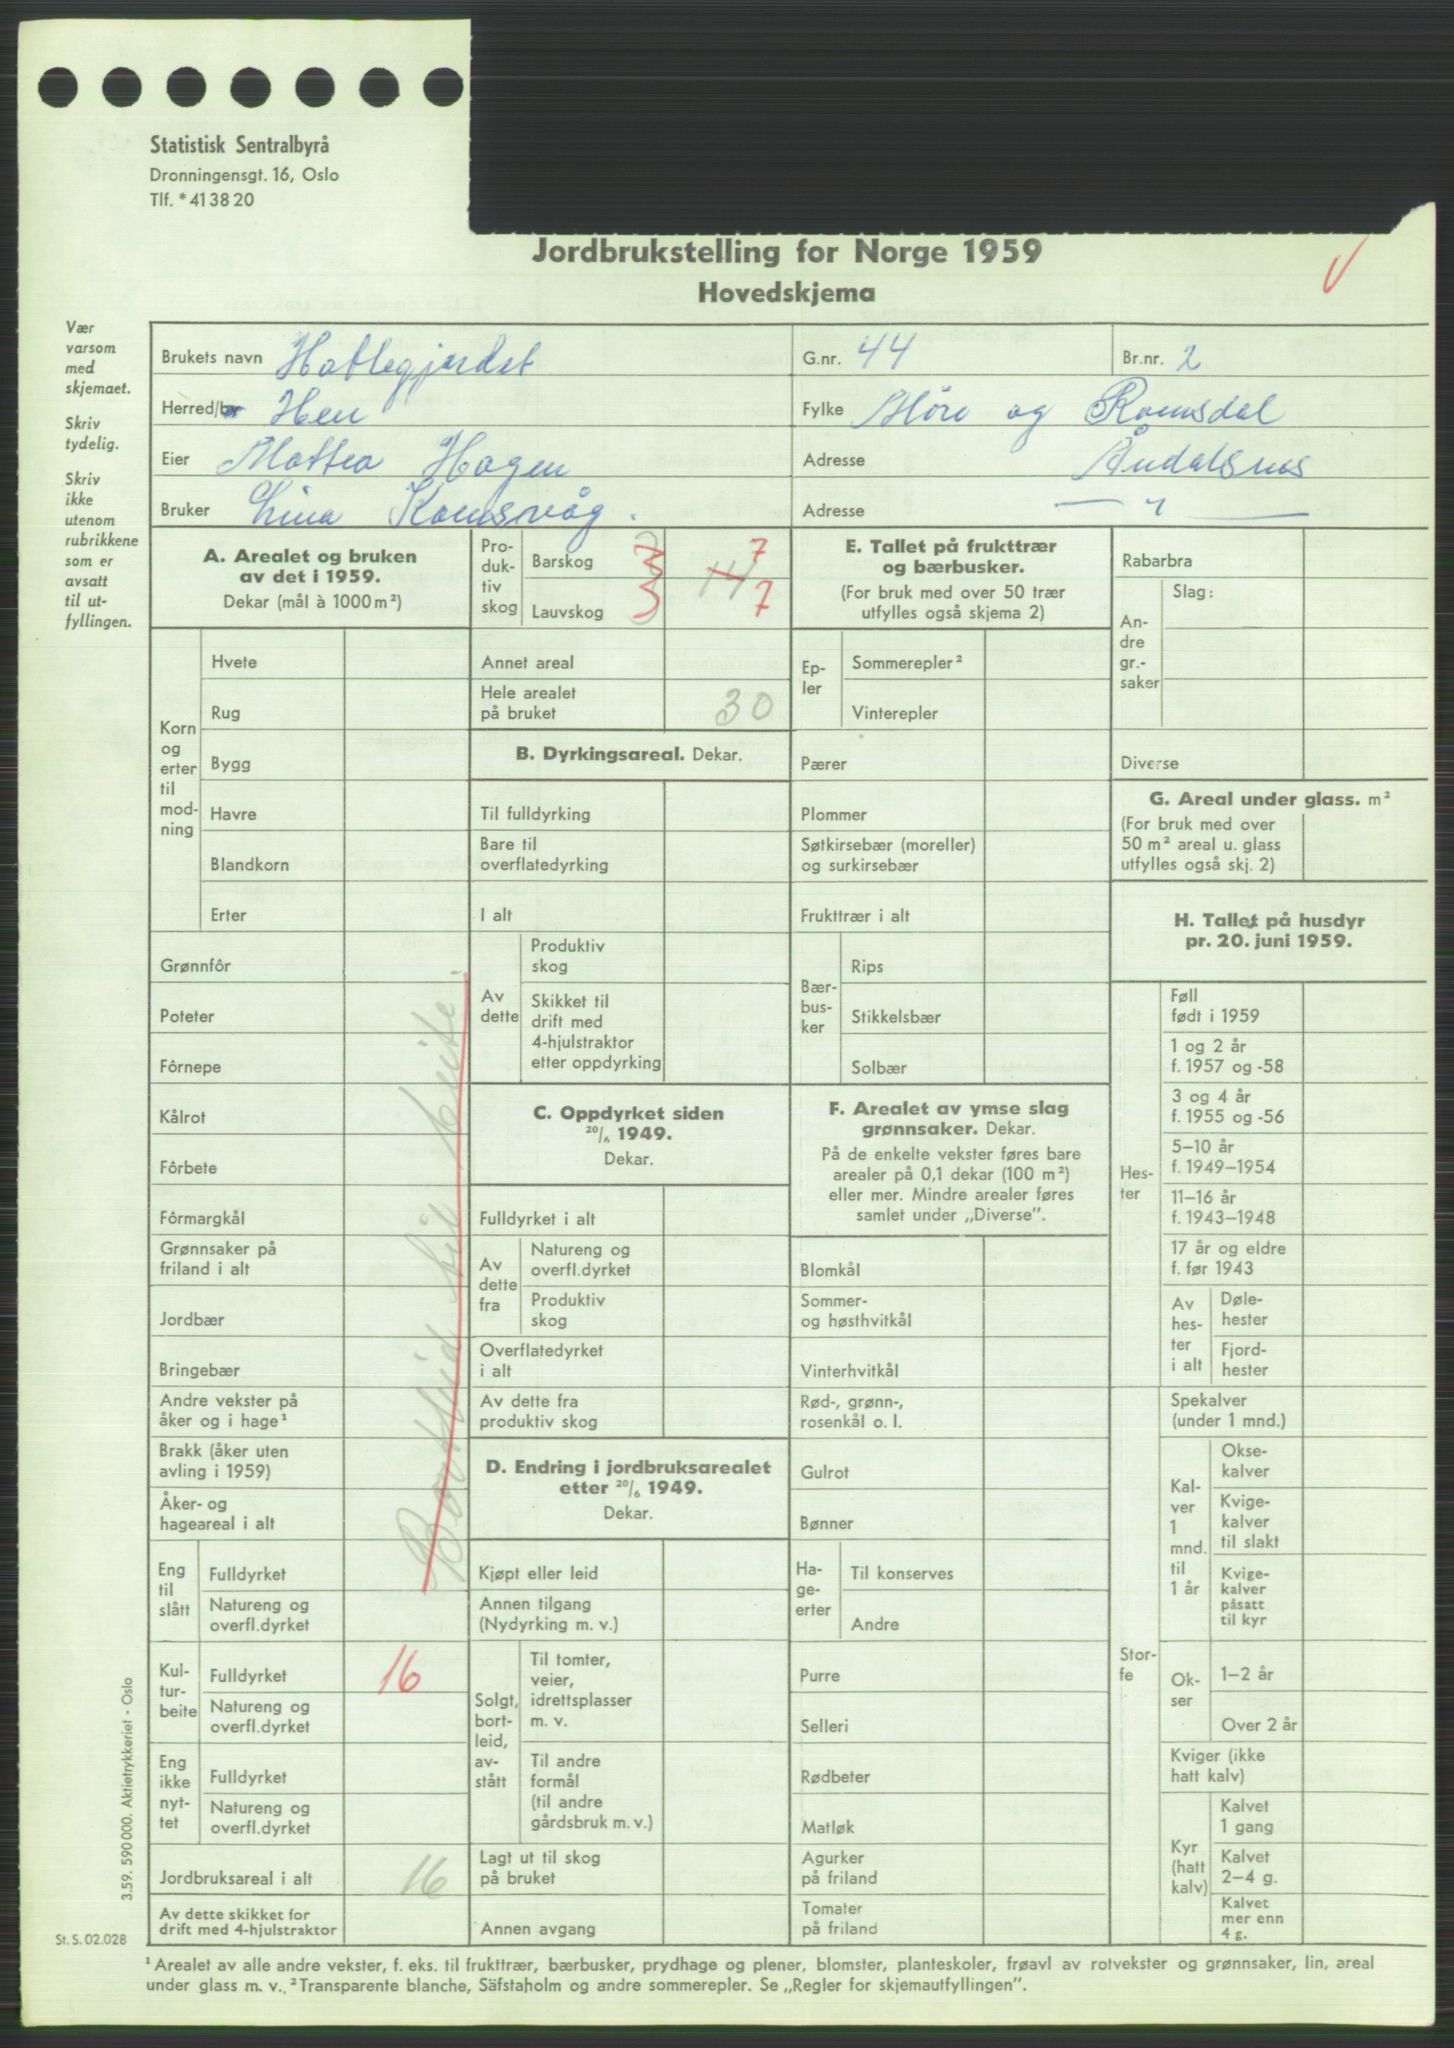 Statistisk Sentralbyrå
Dronningensgt. 16, Oslo
Tlf. * 41 38 20
Jordbrukstelling for Norge 1959
Hovedskjema
Vær
varsom
med
skjemaet.
Skriv
tydelig.
Skriv
ikke
utenom
rubrikkene
som er
avsatt
til ut-
fyllingen.
Brukets navn Hattegjerdet G.nr. 44 Br.nr. 2
Herred/by Hen Fylke Møre og Romsdal
Eier Mattea Hagen Adresse Åndalsnes
Bruker Lina Ramsvåg. Adresse — " —
A. Arealet og bruken
av det i 1959.
Dekar (mål à 1000 m²)
Korn
og
erter
til
mod-
ning
Hvete
Rug
Bygg
Havre
Blandkorn
Erter
Grønnfôr
Poteter
Fôrnepe
Kålrot
Fôrbete
Fôrmargkål
Grønnsaker på
friland i alt
Jordbær
Bringebær
Andre vekster på
åker og i hage¹
Brakk (åker uten
avling i 1959)
Åker- og
hageareal i alt
Eng
til
slått
Fulldyrket
Natureng og
overfl.dyrket
Kul-
tur-
beite
Fulldyrket 16
Natureng og
overfl.dyrket
Eng
ikke
nyt-
tet
Fulldyrket
Natureng og
overfl.dyrket
Jordbruksareal i alt 16
Av dette skikket for
drift med 4-hjulstraktor
Bortleid til beite.
Pro-
duk-
tiv
skog
Barskog 3 14 7
Lauvskog 3 7
Annet areal
Hele arealet
på bruket 30
B. Dyrkingsareal. Dekar.
Til fulldyrking
Bare til
overflatedyrking
I alt
Av
dette
Produktiv
skog
Skikket til
drift med
4-hjulstraktor
etter oppdyrking
C. Oppdyrket siden
20/6 1949.
Dekar.
Fulldyrket i alt
Av
dette
fra
Natureng og
overfl.dyrket
Produktiv
skog
Overflatedyrket
i alt
Av dette fra
produktiv skog
D. Endring i jordbruksarealet
etter 20/6 1949.
Dekar.
Kjøpt eller leid
Annen tilgang
(Nydyrking m. v.)
Solgt,
bort-
leid,
av-
stått
Til tomter,
veier,
idrettsplasser
m. v.
Til andre
formål
(til andre
gårdsbruk m. v.)
Lagt ut til skog
på bruket
Annen avgang
E. Tallet på frukttrær
og bærbusker.
(For bruk med over 50 trær
utfylles også skjema 2)
Ep-
ler
Sommerepler²
Vinterepler
Pærer
Plommer
Søtkirsebær (moreller)
og surkirsebær
Frukttrær i alt
Bær-
bus-
ker
Rips
Stikkelsbær
Solbær
F. Arealet av ymse slag
grønnsaker. Dekar.
På de enkelte vekster føres bare
arealer på 0,1 dekar (100 m²)
eller mer. Mindre arealer føres
samlet under „Diverse”.
Blomkål
Sommer-
og høsthvitkål
Vinterhvitkål
Rød-, grønn-,
rosenkål o. l.
Gulrot
Bønner
Ha-
ge-
erter
Til konserves
Andre
Purre
Selleri
Rødbeter
Matløk
Agurker
på friland
Tomater
på friland
Rabarbra
An-
dre
gr.-
saker
Slag:
Diverse
G. Areal under glass. m²
(For bruk med over
50 m² areal u. glass
utfylles også skj. 2)
H. Tallet på husdyr
pr. 20. juni 1959.
Hes-
ter
Føll
født i 1959
1 og 2 år
f. 1957 og -58
3 og 4 år
f. 1955 og -56
5–10 år
f. 1949–1954
11–16 år
f. 1943–1948
17 år og eldre
f. før 1943
Av
hes-
ter
i alt
Døle-
hester
Fjord-
hester
Stor-
fe
Spekalver
(under 1 mnd.)
Kal-
ver
1
mnd.
til
1 år
Okse-
kalver
Kvige-
kalver
til slakt
Kvige-
kalver
påsatt
til kyr
Ok-
ser
1–2 år
Over 2 år
Kviger (ikke
hatt kalv)
Kyr
(hatt
kalv)
Kalvet
1 gang
Kalvet
2–4 g.
Kalvet
mer enn
4 g.
3.59. 590 000. Aktietrykkeriet - Oslo
St. S. 02.028
¹ Arealet av alle andre vekster, f. eks. til frukttrær, bærbusker, prydhage og plener, blomster, planteskoler, frøavl av rotvekster og grønnsaker, lin, areal
under glass m. v. ² Transparente blanche, Säfstaholm og andre sommerepler. Se „Regler for skjemautfyllingen”.